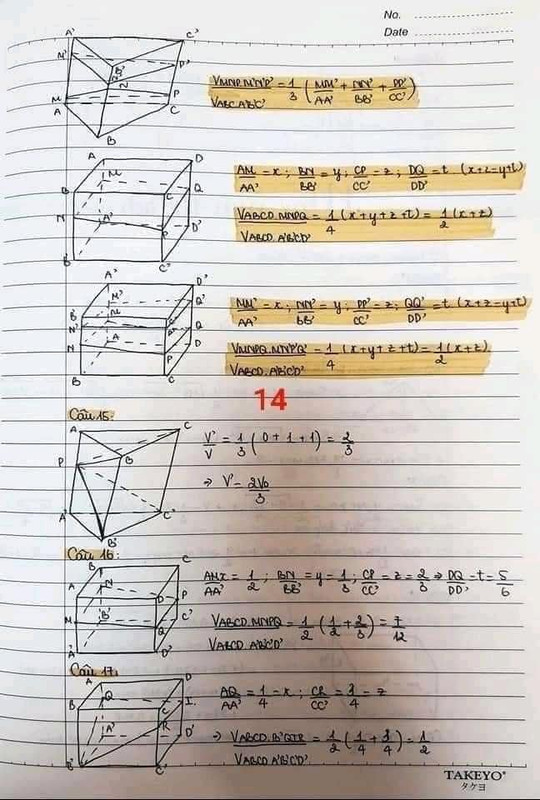 No.
Date
A' C'
M' N' P'
M N P
A C
B
V_MNP.M'N'P' / V_ABC.A'B'C' = 1/3 (MM'/AA' + NN'/BB' + PP'/CC')
A D
B M C Q
N A' P D'
B' C'
AM/AA' = x ; BN/BB' = y ; CP/CC' = z ; DQ/DD' = t (x+z=y+t)
V_ABCD.MNPQ / V_ABCD.A'B'C'D' = 1/4 (x+y+z+t) = 1/2 (x+z)
A' D'
B' M' Q'
N' M Q
N A P D
B C
MM'/AA' = x ; NN'/BB' = y ; PP'/CC' = z ; QQ'/DD' = t (x+z=y+t)
V_MNPQ.M'N'P'Q' / V_ABCD.A'B'C'D' = 1/4 (x+y+z+t) = 1/2 (x+z)
14
Câu 15:
A C
P B
A' C'
B'
V'/V = 1/3 (0 + 1 + 1) = 2/3
⇒ V' = 2V₀/3
Câu 16:
B C
A N D P
M B' Q C'
A' D'
AM/AA' = 1/2 ; BN/BB' = y = 1/3 ; CP/CC' = z = 2/3 ⇒ DQ/DD' = t = 5/6
V_ABCD.MNPQ / V_ABCD.A'B'C'D' = 1/2 (1/2 + 2/3) = 7/12
Câu 17:
A D
B Q C I
A' R D'
B' C'
AQ/AA' = 1/4 = x ; CR/CC' = 3/4 = z
⇒ V_ABCD.B'QIR / V_ABCD.A'B'C'D' = 1/2 (1/4 + 3/4) = 1/2
TAKEYO®
タケヨ